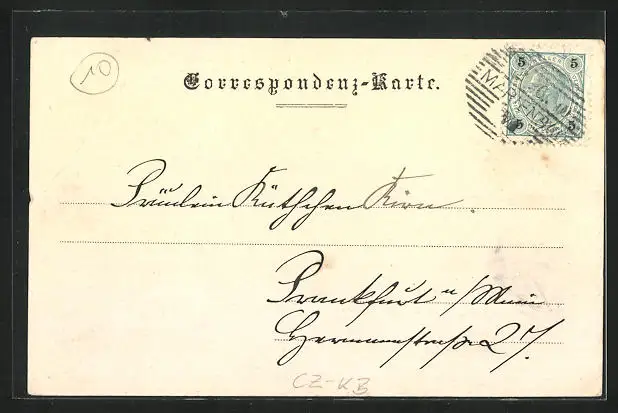 10
Correspondenz-Karte.
5 5
5 5
MARIENBAD
Fräulein Käthchen Kirn.
Frankfurt a/Main
Hermannstraße 27.
CZ-KB